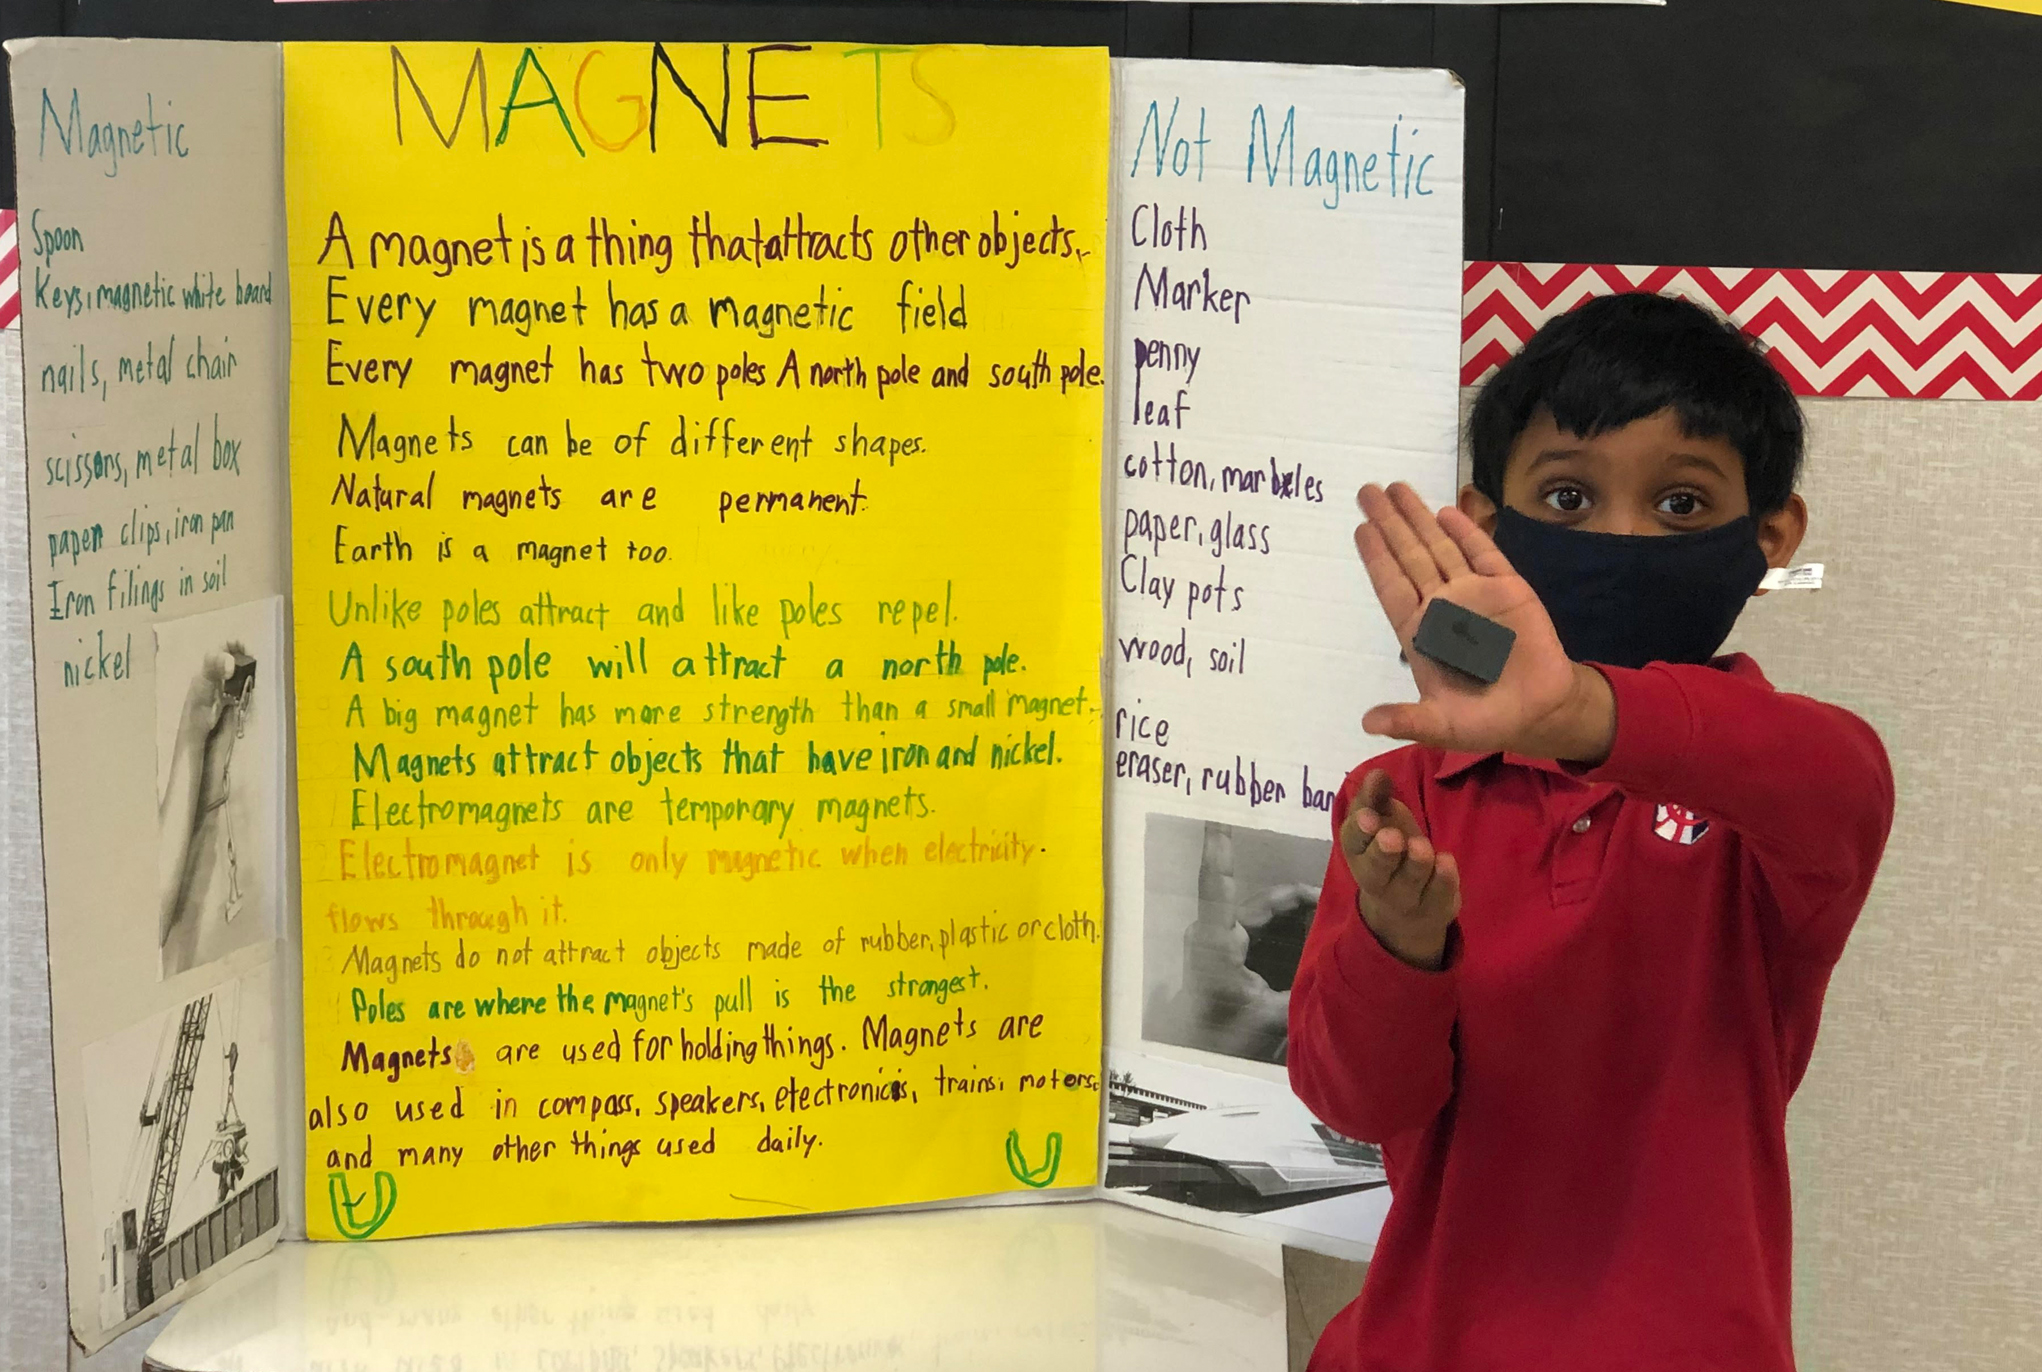 Magnetic
Spoon
Keys, magnetic white board
nails, metal chair
scissors, metal box
paper clips, iron pan
Iron filings in soil
nickel
MAGNETS
A magnet is a thing that attracts other objects.
Every magnet has a magnetic field
Every magnet has two poles A north pole and south pole.
Magnets can be of different shapes.
Natural magnets are permanent.
Earth is a magnet too.
Unlike poles attract and like poles repel.
A south pole will attract a north pole.
A big magnet has more strength than a small magnet.
Magnets attract objects that have iron and nickel.
Electromagnets are temporary magnets.
Electromagnet is only magnetic when electricity.
flows through it.
Magnets do not attract objects made of rubber, plastic or cloth.
Poles are where the magnet's pull is the strongest.
Magnets are used for holding things. Magnets are
also used in compass, speakers, electronics, trains, motors,
and many other things used daily.
Not Magnetic
Cloth
Marker
penny
leaf
cotton, marbles
paper, glass
Clay pots
wood, soil
rice
eraser, rubber ban